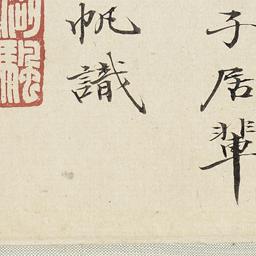 子居輩
帆識